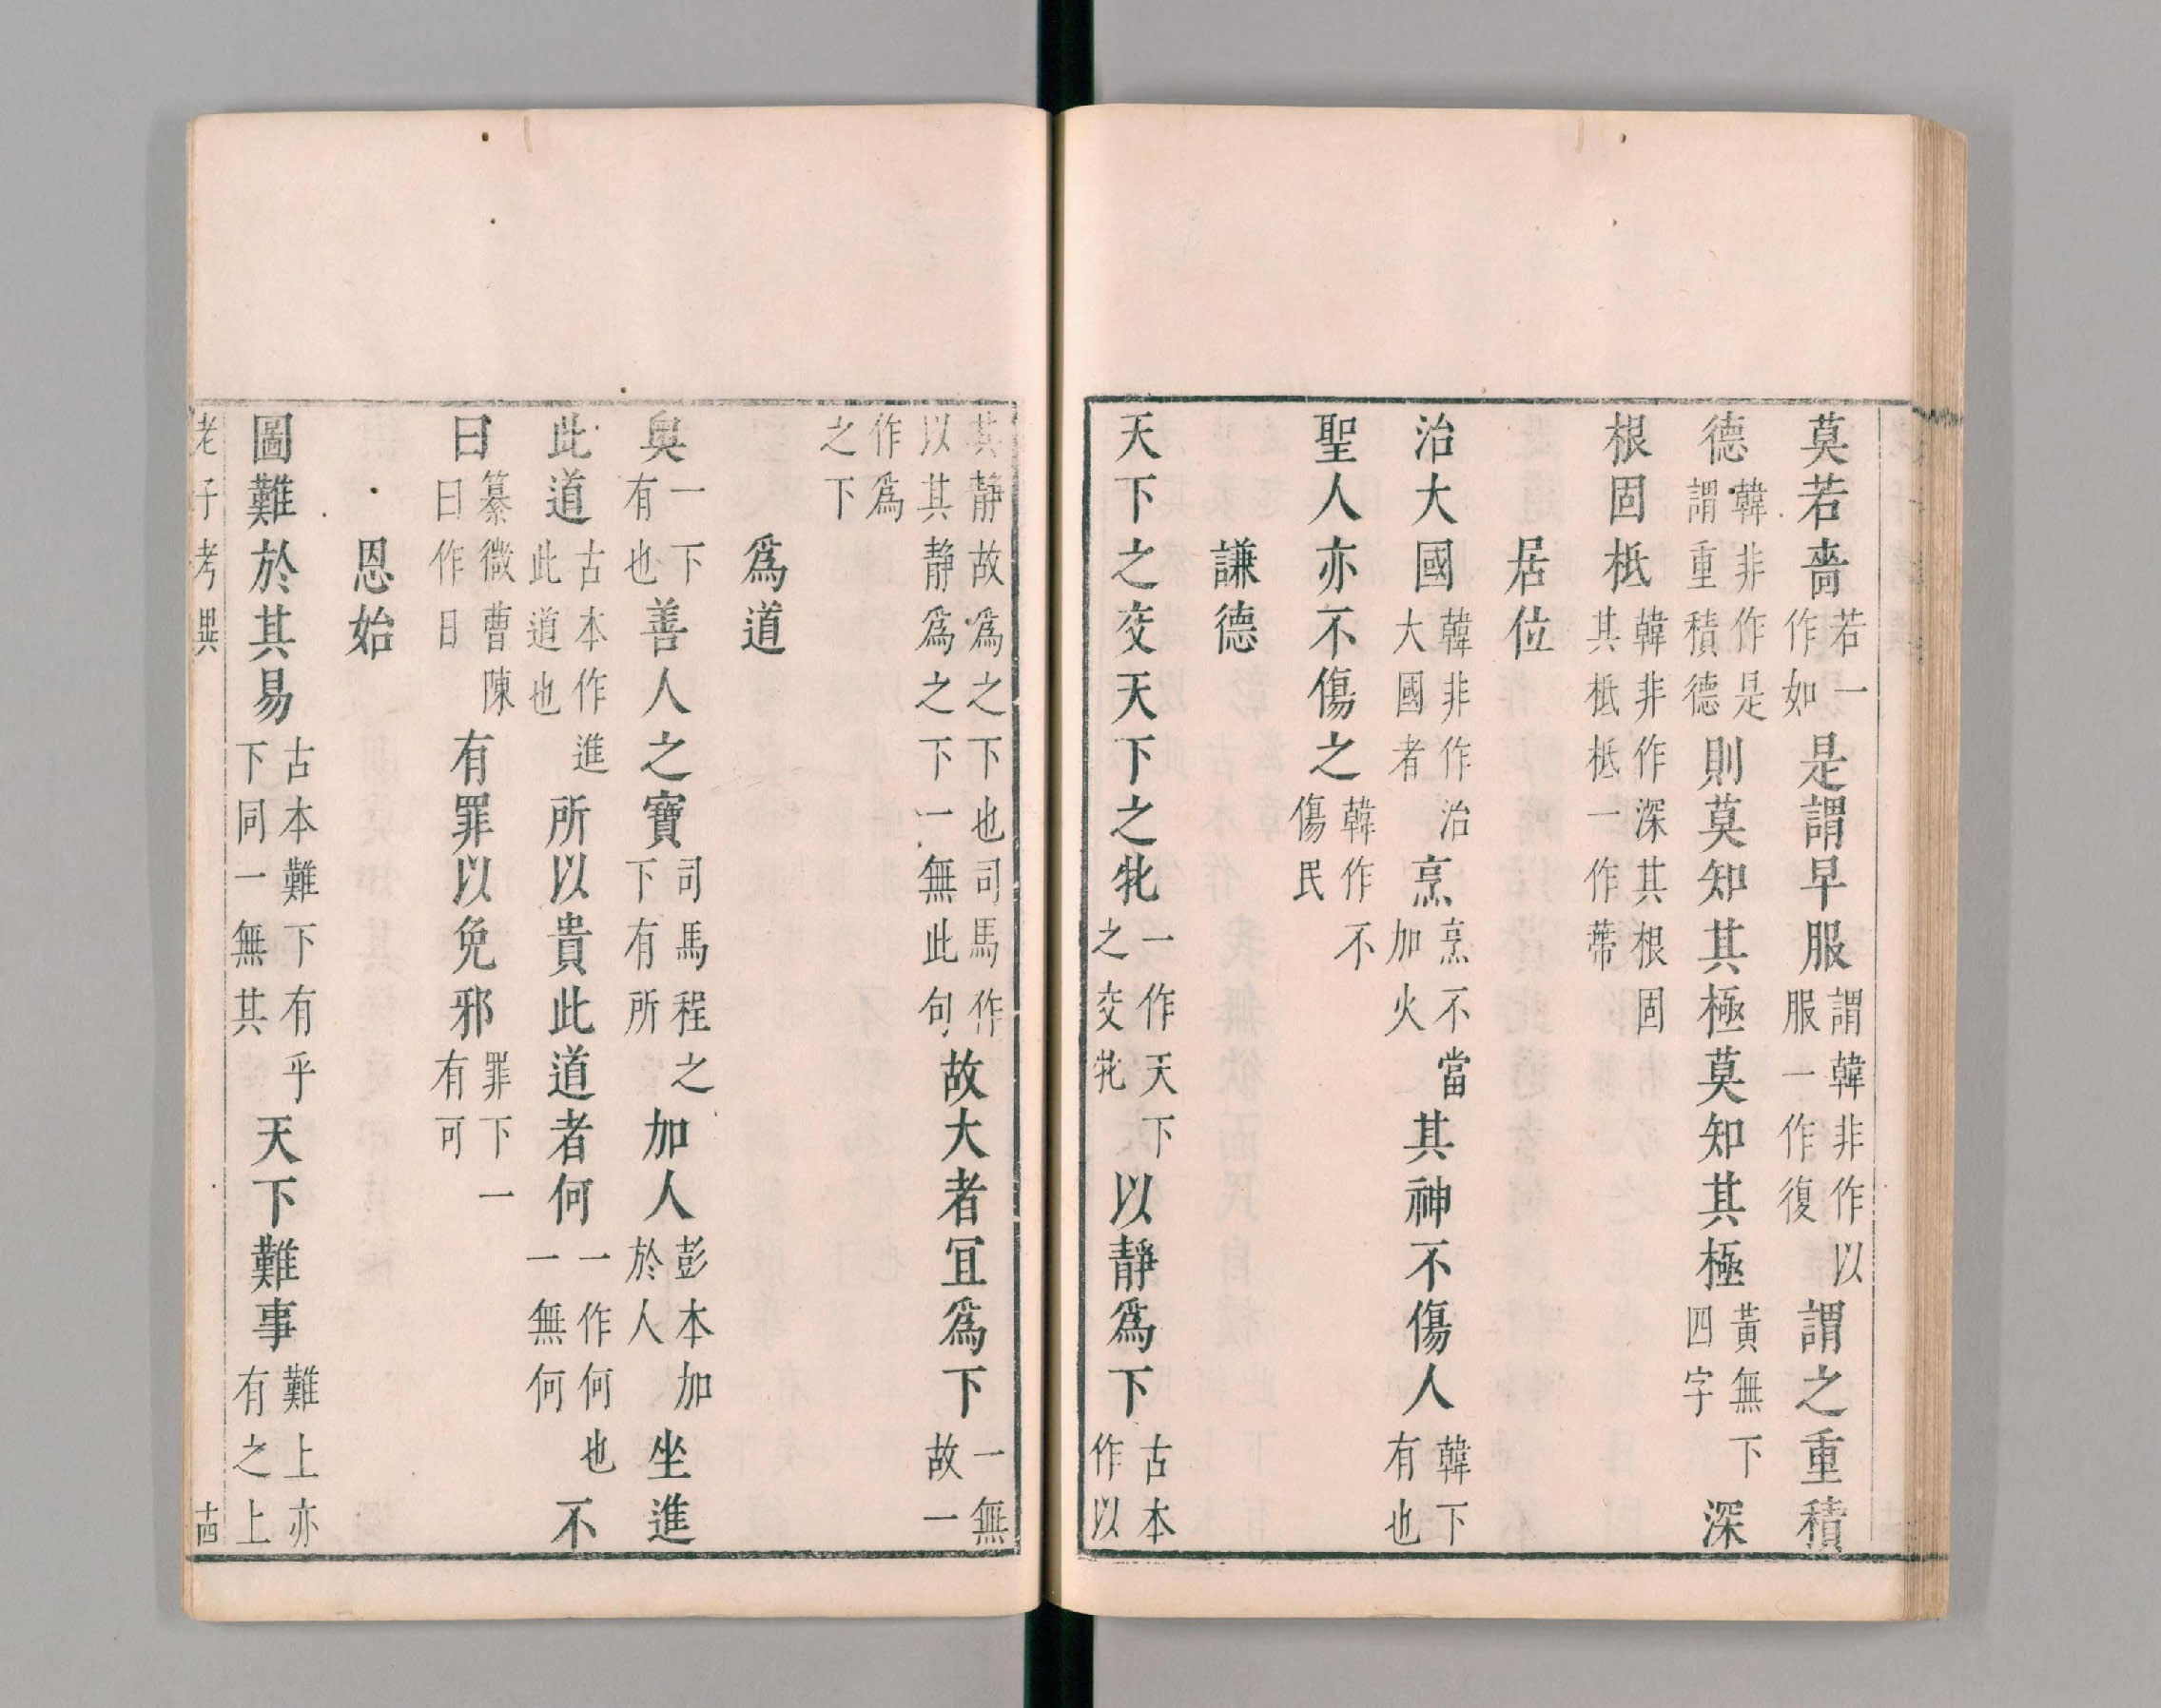 莫若嗇若一作如是謂早服謂韓非作以服一作復謂之重積
德韓非作是謂重積德則莫知其極莫知其極黃無下四字深
根固柢韓非作深其根固其柢柢一作蔕
居位
治大國韓非作治大國者烹烹不當加火其神不傷人韓下有也
聖人亦不傷之韓作不傷民
謙德
天下之交天下之牝一作天下之交牝以靜爲下古本作以
其靜故爲之下也司馬作以其靜爲之下一無此句故大者宜爲下一無故一
作爲之下
爲道
奧一下有也善人之寶司馬程之下有所加人彭本加於人坐進
此道古本作進此道也所以貴此道者何一作何也一無何不
曰纂微曹陳曰作日有罪以免邪罪下一有可
恩始
圖難於其易古本難下有乎下同一無其天下難事難上亦有之上
老子考異 十四